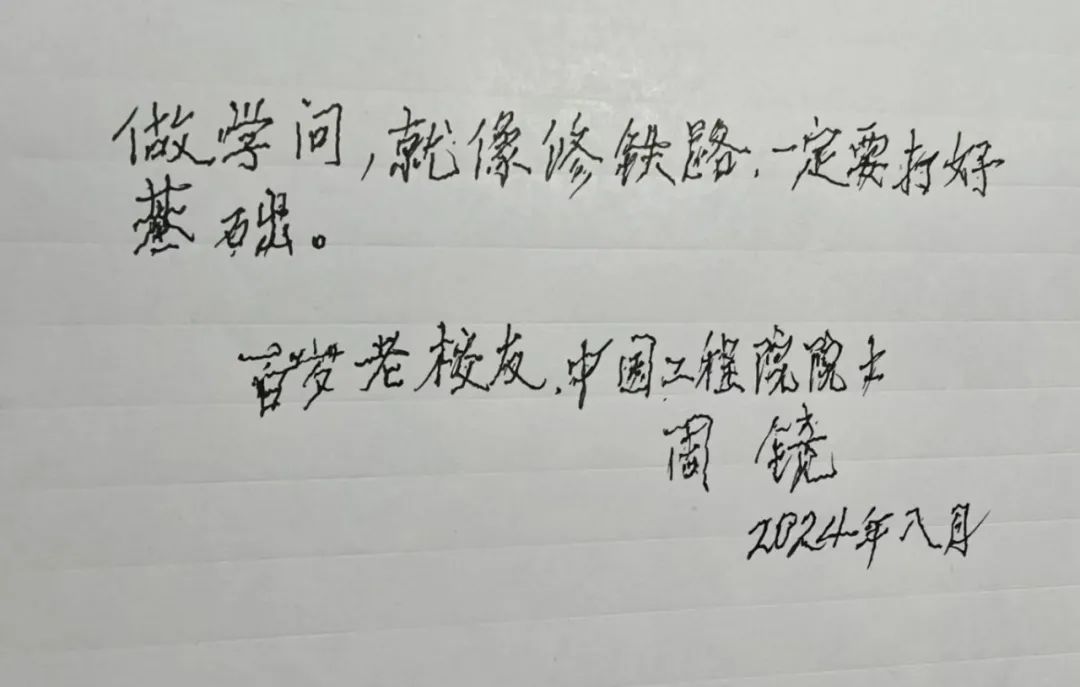 做学问,就像修铁路,一定要打好
基础。
百岁老校友,中国工程院院士
周镜
2024年八月